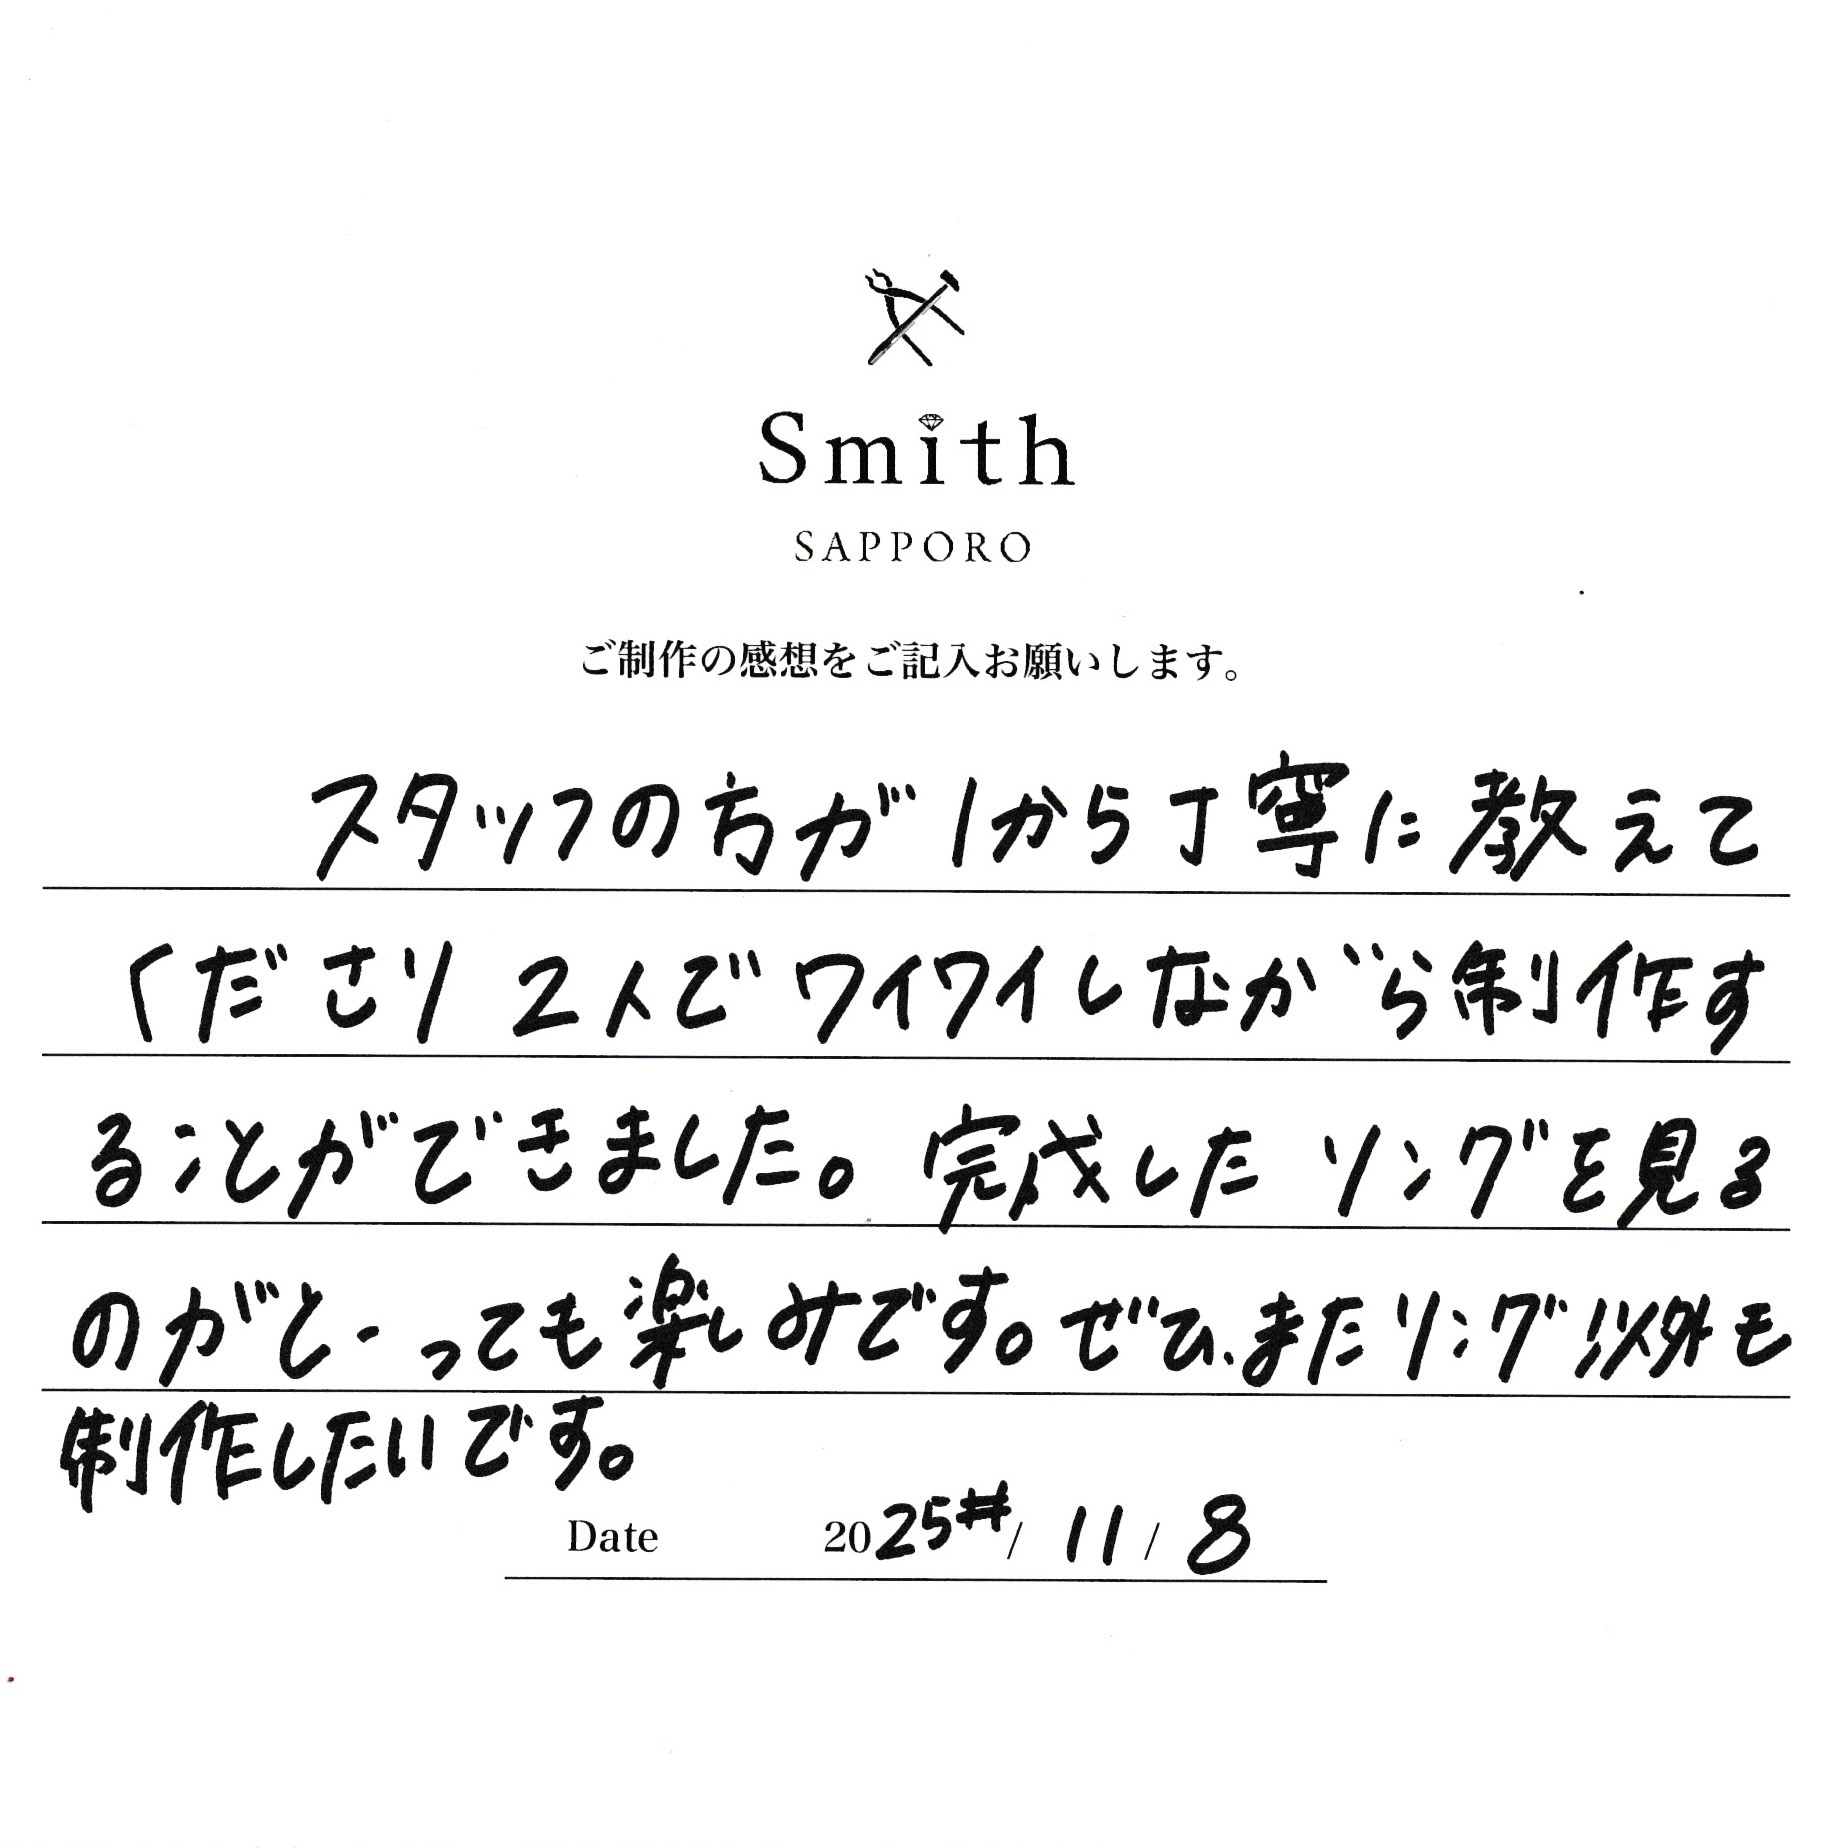 Smith
SAPPORO
ご制作の感想をご記入お願いします。
スタッフの方が1から丁寧に教えて
くださり2人でワイワイしながら制作す
ることができました。完成したリングを見る
のがとーっても楽しみです。ぜひ、またリング以外も
制作したいです。
Date 2025年/11/8